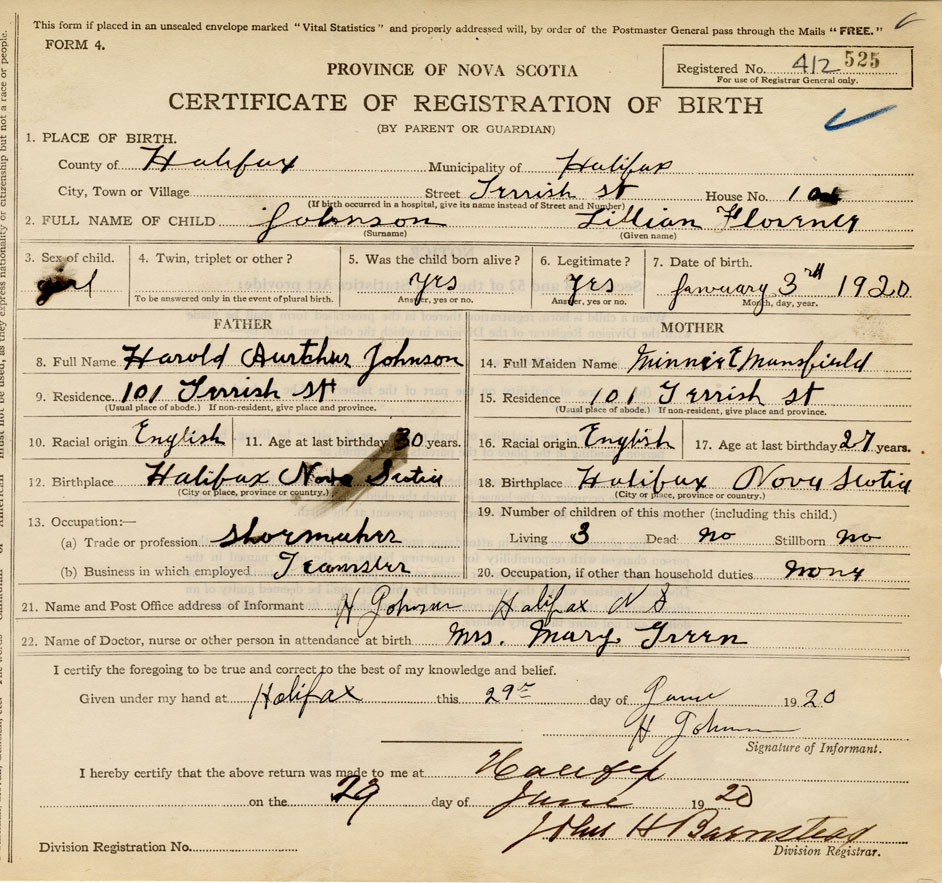 This form if placed in an unsealed envelope marked "Vital Statistics" and properly addressed will, by order of the Postmaster General pass through the Mails "FREE."
FORM 4.
Registered No. 412 525
For use of Registrar General only.
PROVINCE OF NOVA SCOTIA
CERTIFICATE OF REGISTRATION OF BIRTH
(BY PARENT OR GUARDIAN)
1. PLACE OF BIRTH.
County of Halifax Municipality of Halifax
City, Town or Village Street Jerrish St House No. 101
(If birth occurred in a hospital, give its name instead of Street and Number)
2. FULL NAME OF CHILD Johnson Lillian Florence
(Surname) (Given name)
3. Sex of child. 4. Twin, triplet or other? 5. Was the child born alive? 6. Legitimate? 7. Date of birth.
girl yes yes January 3rd 1920
To be answered only in the event of plural birth. Answer, yes or no. Answer, yes or no. Month, day, year.
FATHER MOTHER
8. Full Name Harold Aurthur Johnson 14. Full Maiden Name Minnie E Mansfield
9. Residence. 101 Jerrish St 15. Residence 101 Jerrish St
(Usual place of abode.) If non-resident, give place and province. (Usual place of abode.) If non-resident, give place and province.
10. Racial origin English 11. Age at last birthday 30 years. 16. Racial origin English 17. Age at last birthday 27 years.
12. Birthplace Halifax Nova Scotia 18. Birthplace Halifax Nova Scotia
(City or place, province or country.) (City or place, province or country.)
13. Occupation:— 19. Number of children of this mother (including this child.)
(a) Trade or profession shoemaker Living 3 Dead no Stillborn no
(b) Business in which employed Teamster 20. Occupation, if other than household duties none
21. Name and Post Office address of Informant H Johnson Halifax N S
22. Name of Doctor, nurse or other person in attendance at birth Mrs. Mary Green
I certify the foregoing to be true and correct to the best of my knowledge and belief.
Given under my hand at Halifax this 29 day of June 1920
H Johnson
Signature of Informant.
I hereby certify that the above return was made to me at Halifax
on the 29 day of June 1920
John H Barnstead
Division Registration No. Division Registrar.